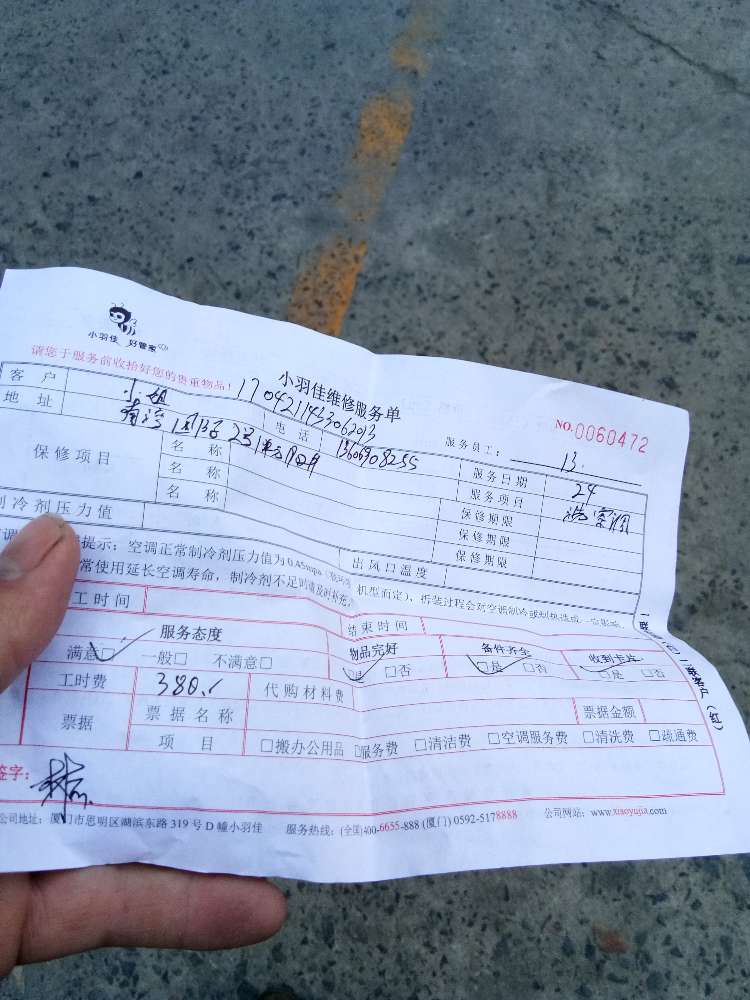 小羽佳 好管家
请您于服务前收拾好您的贵重物品！
小羽佳维修服务单
NO.0060472
服务员工： 13.
客户 小姐 1704211433062013 电话 服务日期 24
地址 13606908255 服务项目
保修项目 名称 保修期限
名称 保修期限
名称 保修期限
制冷剂压力值 出风口温度
提示：空调正常制冷剂压力值为0.45mpa 机型而定），拆装过程会对空调制冷或制热造成一定影响
常使用延长空调寿命，制冷剂不足时请及时补充。
工时间 结束时间
服务态度 物品完好 备件齐全 收到卡片
满意□ 一般□ 不满意□ □是 □否 □是 □否 □是 □否
工时费 380. 代购材料费
票据 票据名称 票据金额
项目 □搬办公用品 □服务费 □清洁费 □空调服务费 □清洗费 □疏通费
签字： 林
公司地址：厦门市思明区湖滨东路319号D幢小羽佳 服务热线：(全国)400-6655-888 (厦门) 0592-5178888 公司网站：www.xiaoyujia.com
二联客户（红）